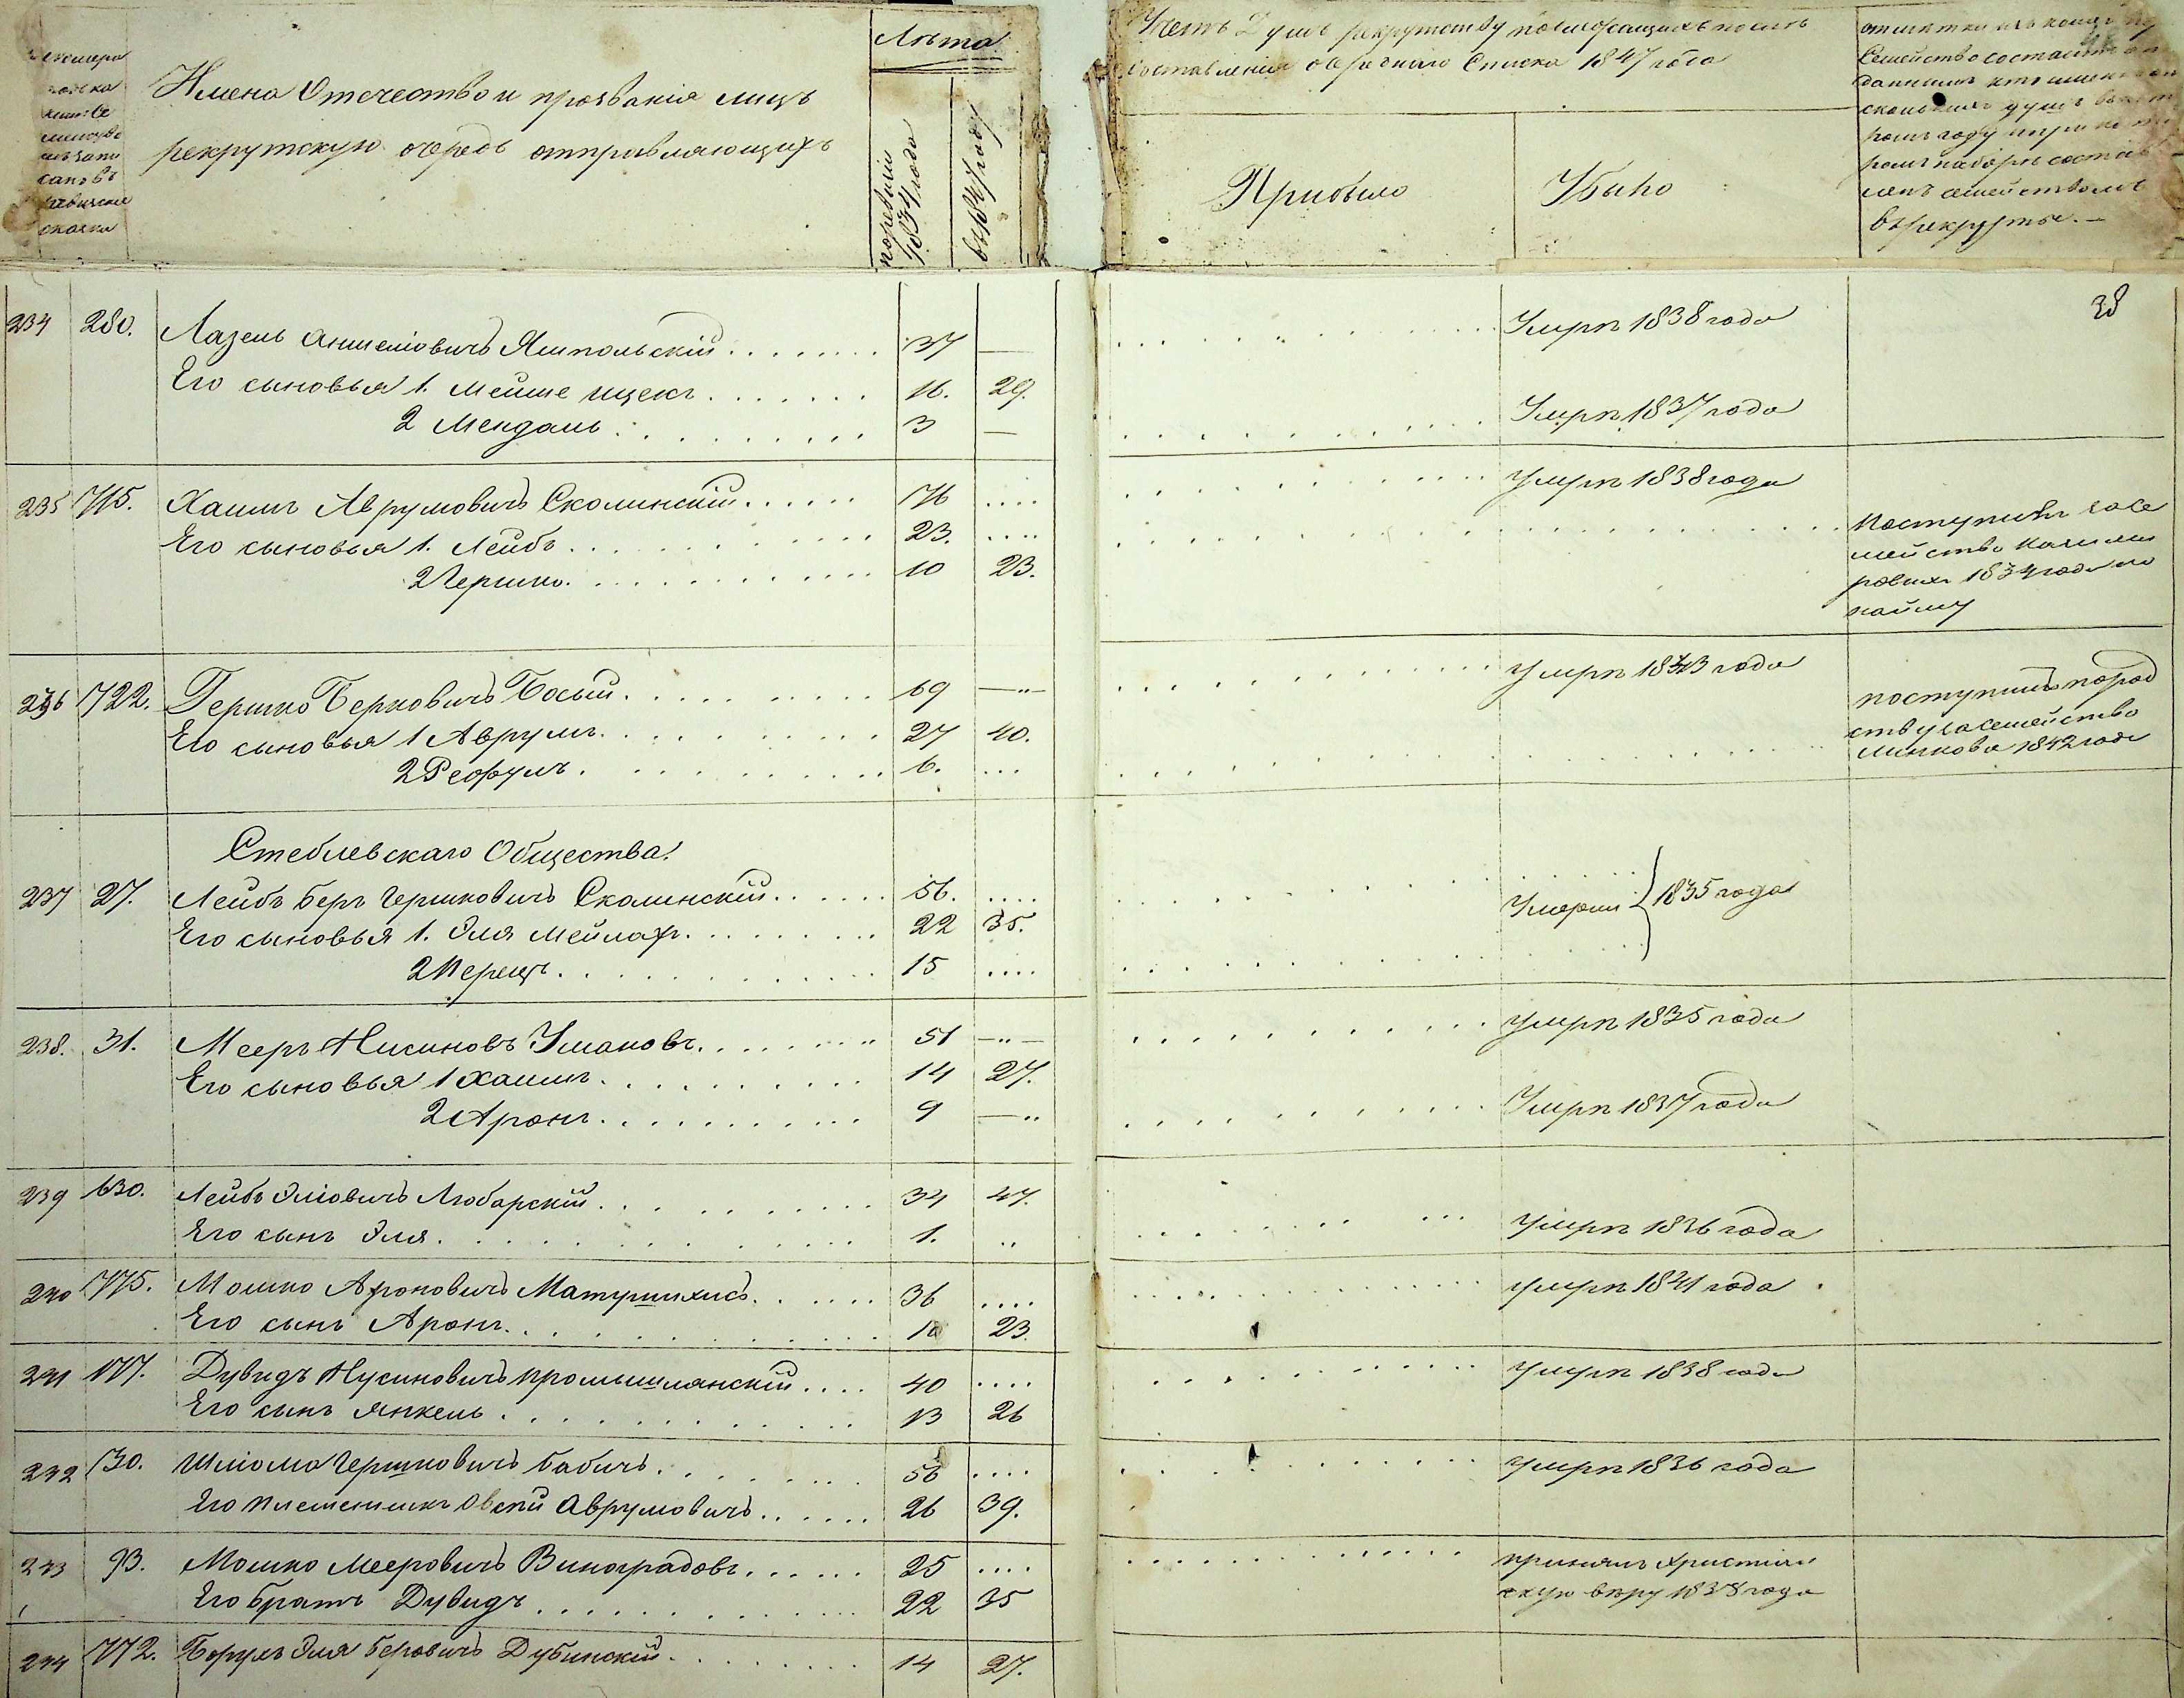 Имена Отечество и прозвания лицъ
рекрутскую очередь отправляющихъ
Лѣта
по ревизіи 1834 года
въ 1847 году
рекрутству подлежащихъ послѣ
составленія очереднаго Списка 1847 года
Прибыло
Убыло
семейство состоитъ
въ рекруты. —
38
234 280. Лазель Аншеліовичъ Ямпольскій 37 — Умръ 1838 года
Его сыновья 1. Мейше Ицекъ 16. 29.
2 Мендаль 3 — Умръ 1837 года
235 715. Хаимъ Аврумовичъ Сколинскій 76 .... умръ 1838 года
Его сыновья 1. Лейбъ 23. .... поступилъ за се
мейство
1834 года по
найму
2 Гершко 10 23.
236 722. Гершко Берковичъ Босый 69 —"— умръ 1843 года
Его сыновья 1 Аврумъ 27 40.
2 Рефулъ 6. ... поступилъ по род
ству за семейство
Линкова 1842 года
Стеблевскаго Общества.
237 27. Лейбъ Беръ Гершковичъ Сколинскій 56. .... Умерли } 1835 года
Его сыновья 1. Эля Мейлахъ 22 35.
2 Перецъ 15 ....
238. 31. Мееръ Нисиновъ Умановъ 51 —"— умръ 1835 года
Его сыновья 1 Хаимъ 14 27.
2 Аронъ 9 —" Умръ 1837 года
239 630. Лейбъ Эліовичъ Любарскій 34 47.
Его сынъ Эля 1. .. умръ 1836 года
240 775. Мошко Ароновичъ 36 .... умръ 1841 года
Его сынъ Аронъ 10 23.
241 177. Дувидъ Нусиновичъ Промышлянскій 40 .... умръ 1838 года
Его сынъ Янкель 13 26
242 130. Шліома Гершковичъ Бабичъ 56 .... умръ 1836 года
Его племенникъ Овсій Аврумовичъ 26 39.
243 93. Мошко Мееровичъ Виноградовъ 25 .... принялъ Христіан
скую вѣру 1838 года
Его братъ Дувидъ 22 35
244 772. Борухъ Эля Беровичъ Дубинскій 14 27.